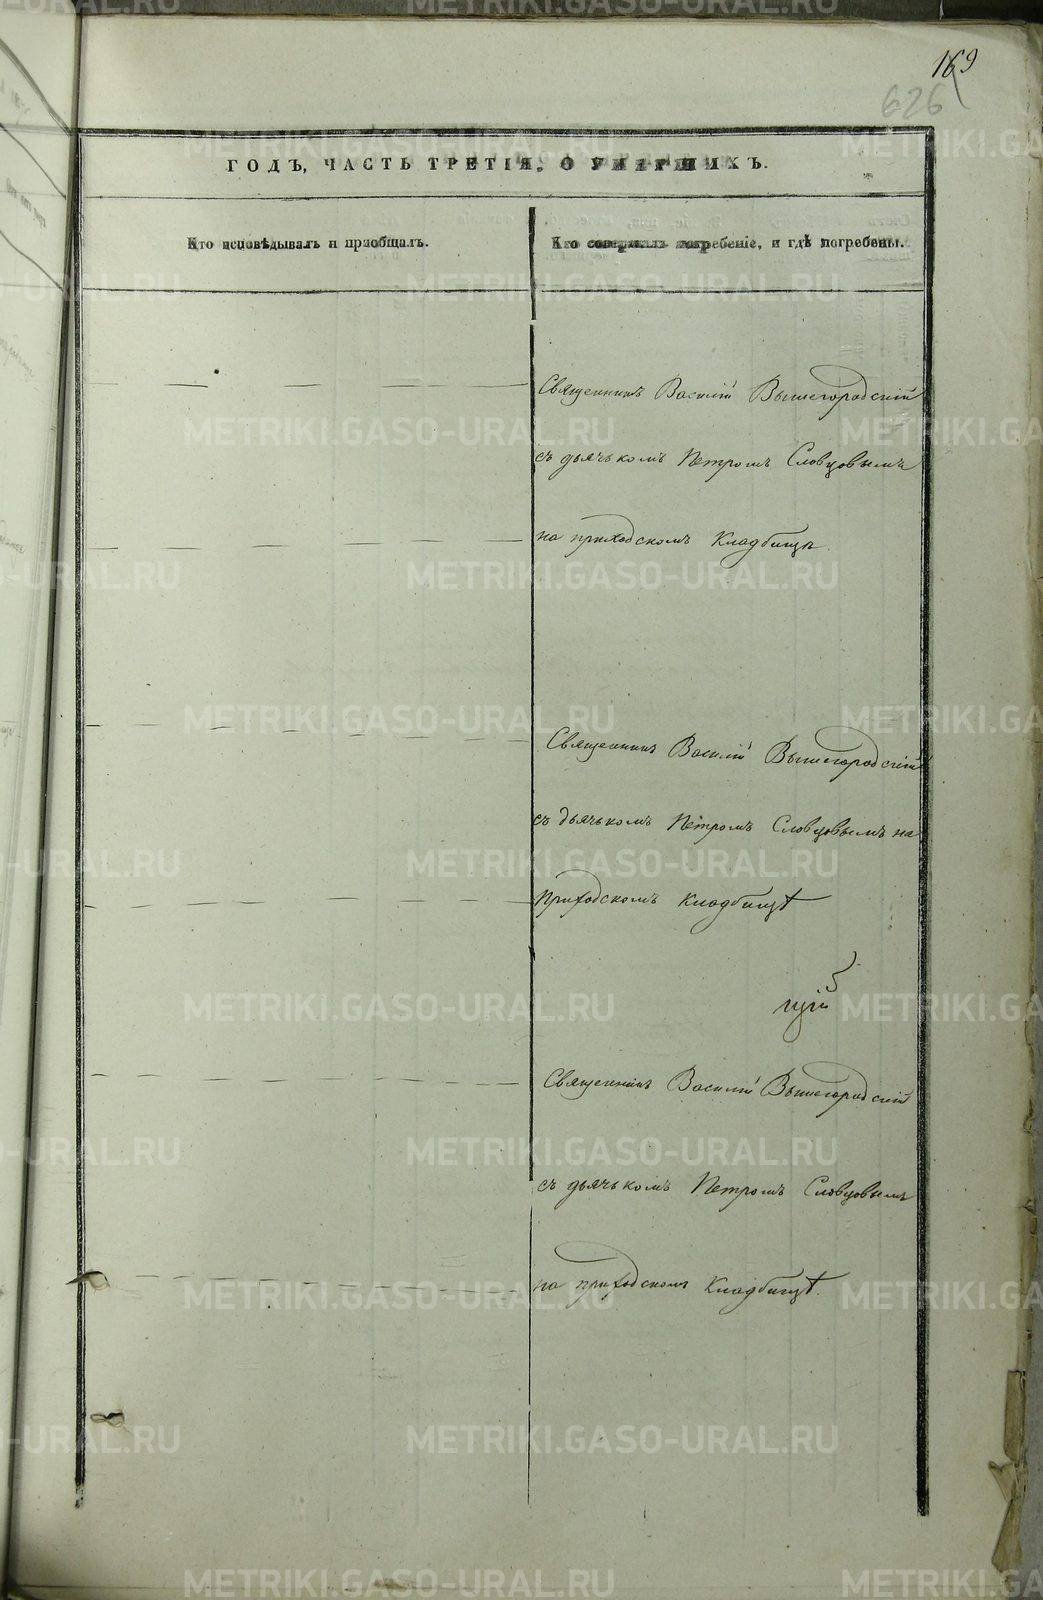 169
626
ГОДЪ, ЧАСТЬ ТРЕТІЯ, О УМЕРШИХЪ.
Кто исповѣдывалъ и пріобщалъ.
Кто совершалъ погребеніе, и гдѣ погребены.
Священникъ Василій Вышегородскій
съ дьячькомъ Петромъ Словцовымъ
на приходскомъ Кладбищѣ.
Священникъ Василій Вышегородскій
съ дьячькомъ Петромъ Словцовымъ на
приходскомъ Кладбищѣ
щій
Священникъ Василій Вышегородскій
съ дьячькомъ Петромъ Словцовымъ
на приходскомъ Кладбищѣ.
METRIKI.GASO-URAL.RU